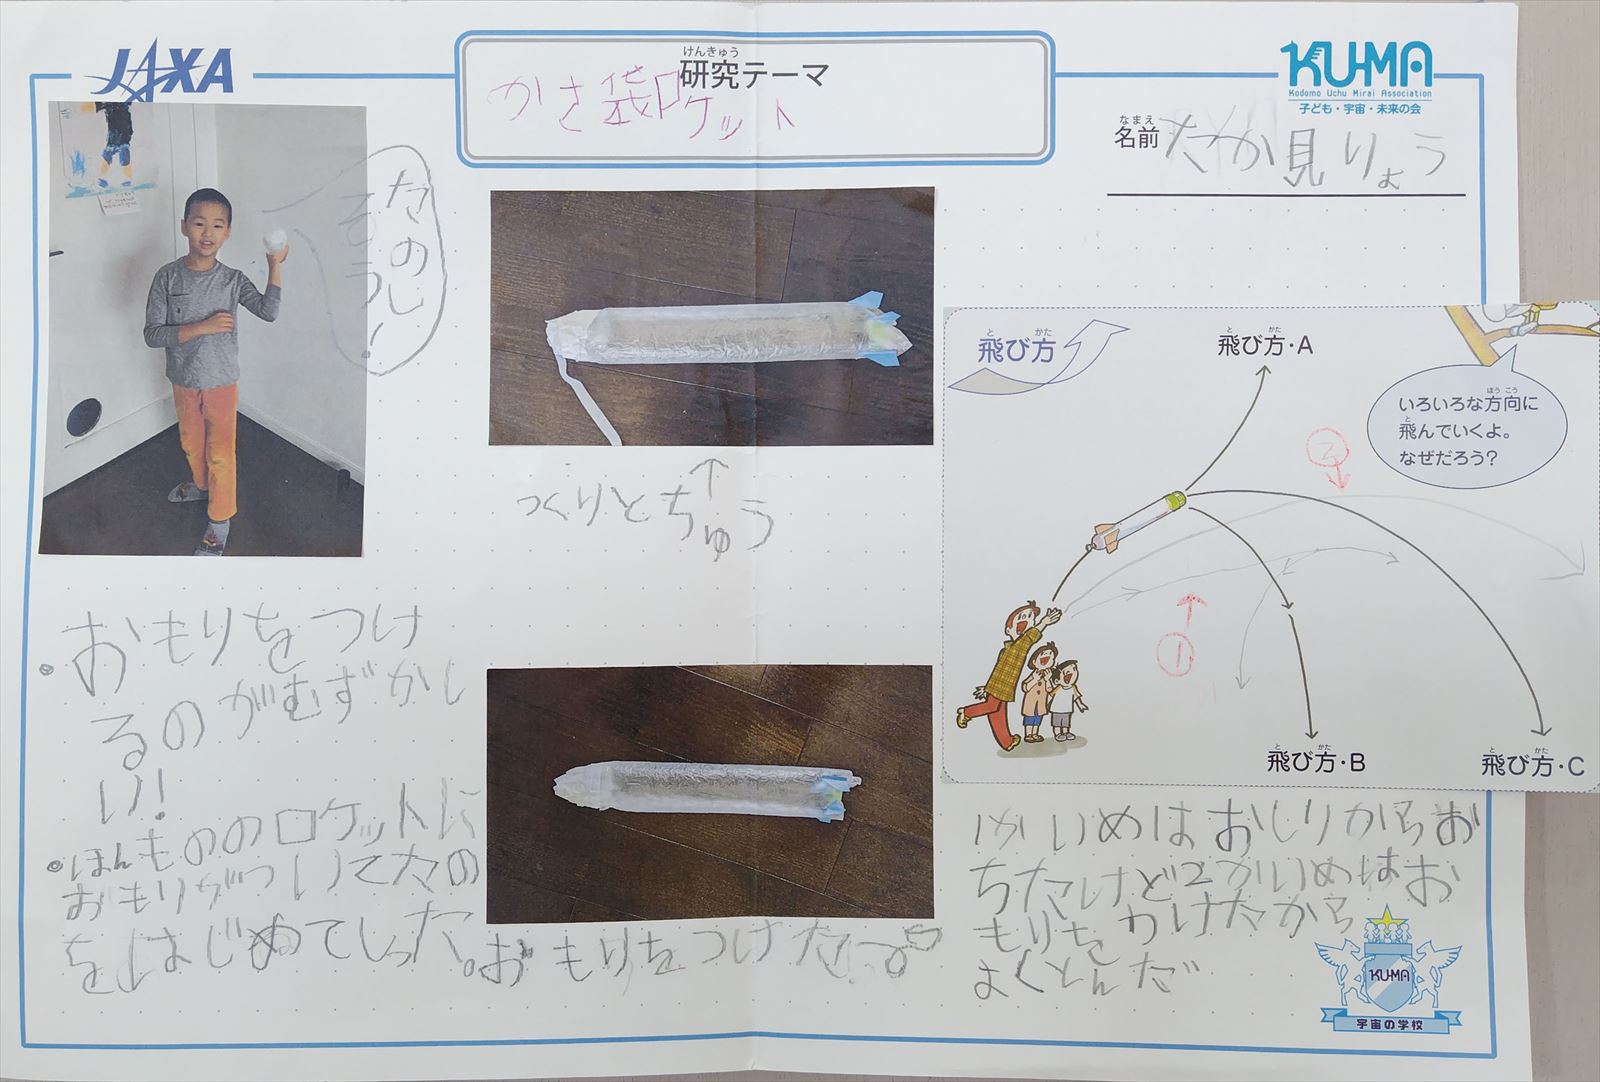 JAXA
けんきゅう
研究テーマ
かさ袋ロケット
KU-MA
Kodomo Uchu Mirai Association
子ども・宇宙・未来の会
なまえ
名前 たか見りょう
たのし
そう!
つくりとちゅう
↑
と かた
飛び方
と かた
飛び方・A
ほうこう
いろいろな方向に
と
飛んでいくよ。
なぜだろう?
②
①
と かた
飛び方・B
と かた
飛び方・C
・おもりをつけ
るのがむずかし
い!
・ほんもののロケットに
おもりがついてたの
をはじめてしった。
おもりをつけたう
いかいめはおしりからお
ちたけど2かいめはお
もりをつけたから
よくとんだ
KU-MA
宇宙の学校